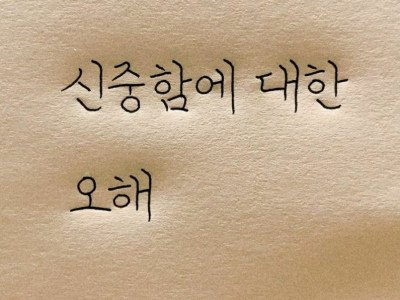 신중함에 대한
오해